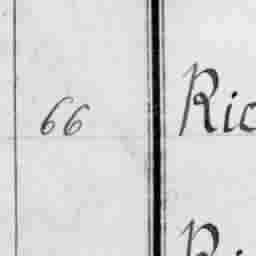 66 Ric